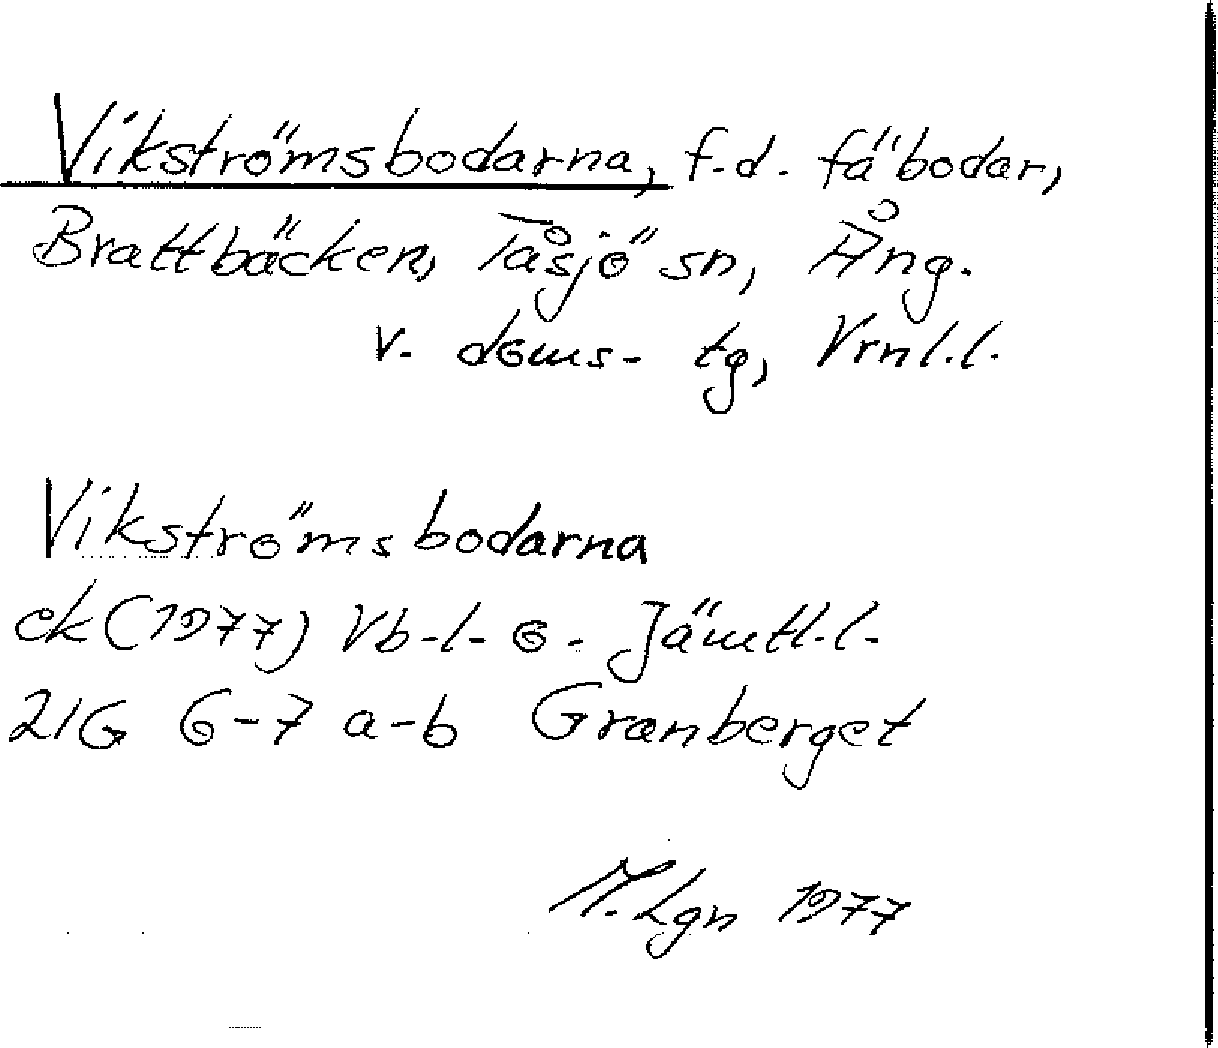 Vikströmsbodarna, f.d. fäbodar,
Brattbäcken, Tåsjö sn, Ång.
v. doms- tg, Vrnl.l.
Vikströmsbodarna
ek (1977) Vb-l- o. Jämtl.l.
21G 6-7 a-b Granberget
M. Lgn 1977